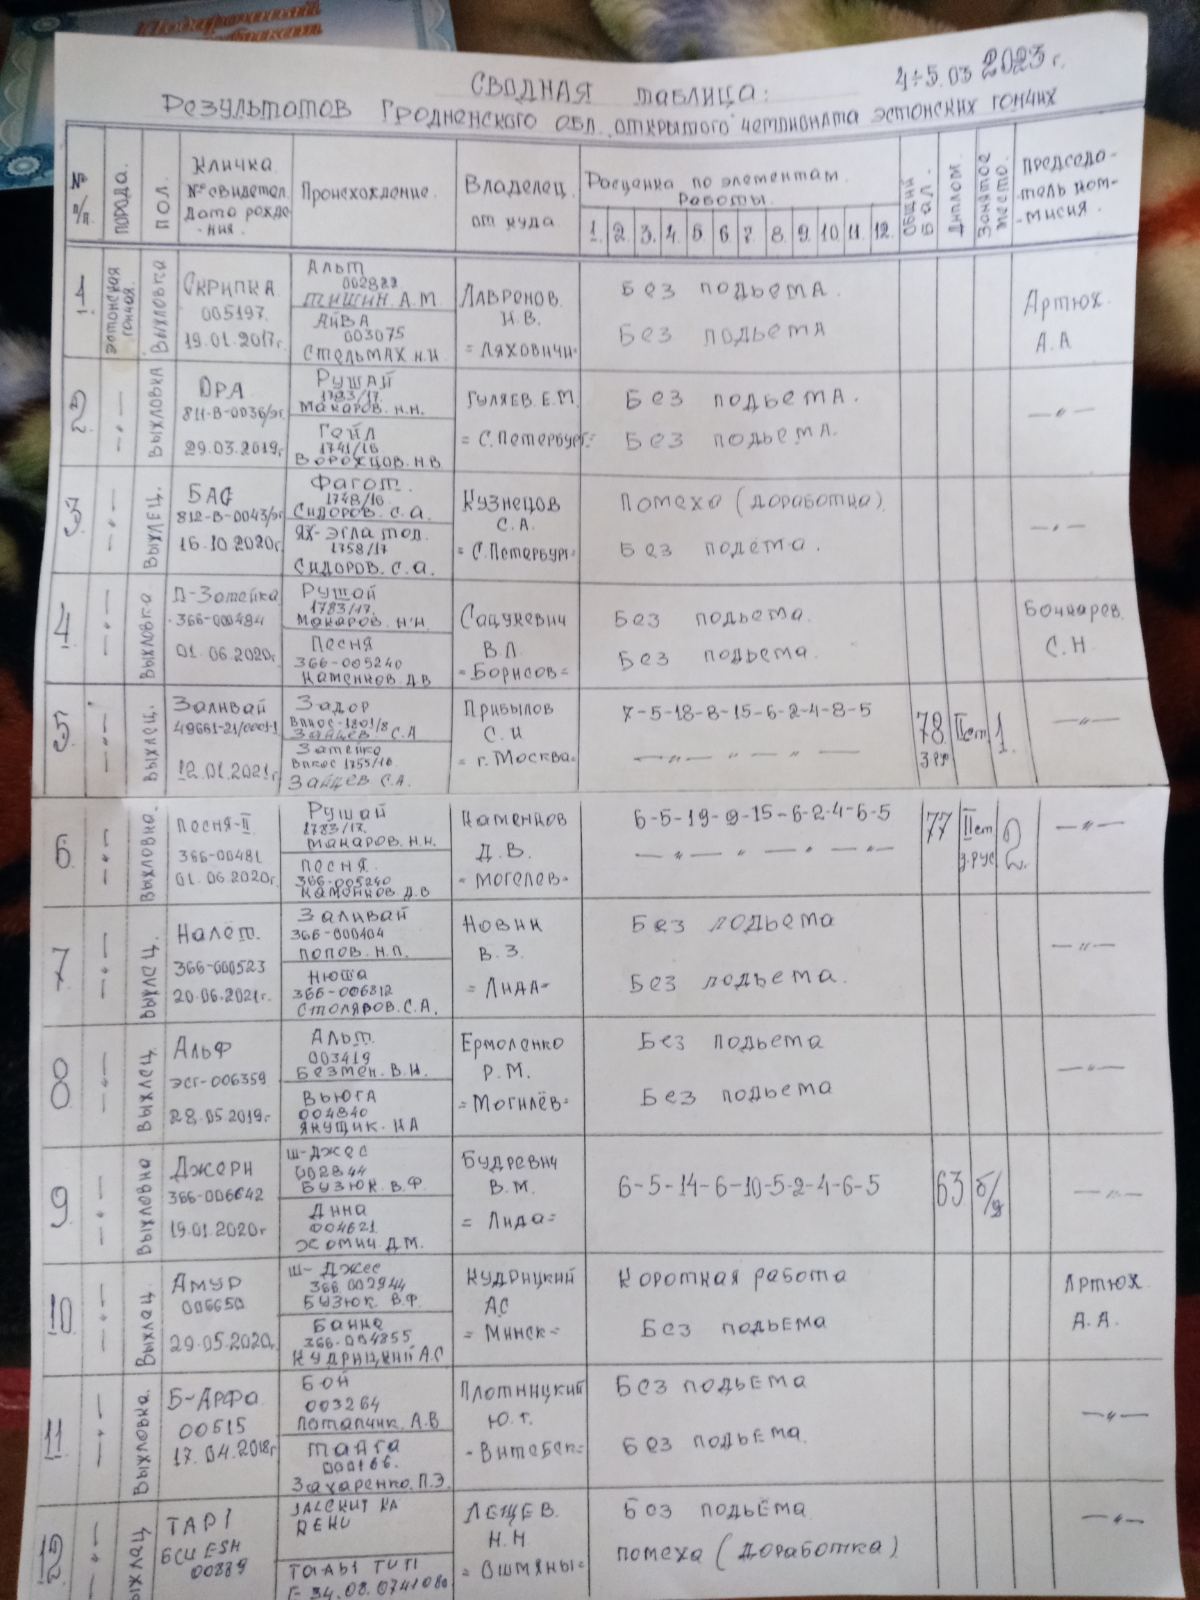 Подарочный
СВОДНАЯ таблица:
4÷5.03 2023 г.
Результатов Гродненского обл. открытого чемпионата эстонских гончих
№ п/п.
порода.
пол.
Кличка
№ свидетел.
Дата рожде-
-ния.
Происхождение.
Владелец.
от куда
Расценка по элементам.
Работы.
1. 2. 3. 4. 5. 6. 7. 8. 9. 10. 11. 12.
Общий бал.
Диплом.
Занятое место.
Председа-
тель ком-
-мисия.
1
эстонская гончая.
Выхловка
Скрипка
005197.
19.01.2017г.
Альт
Тишин А.М.
Айва
003075
Стельмах Н.И.
Лавренов.
Н.В.
=Ляховичи=
Без подьема.
Без подьема
Артюх.
А.А
2
—"—
Выхловка
ОРА
811-В-0036/эг
29.03.2019г
Рушай
1783/17.
Макаров. Н.Н.
Гейл
1741/16
Ворожцов. Н.В
Гуляев. Е.М.
=С.Петербург=
Без подьема.
Без подьема.
—"—
3
—"—
Выхлец.
БАС
812-В-0043/эг
16.10.2020г.
Фагот.
1748/16
Сидоров. С.А.
1758/17
Сидоров. С.А.
Кузнецов
С.А.
=С.Петербург=
Помеха (доработка)
Без подёма.
—"—
4
—"—
Выхловка
П-Затейка
366-000484
01.06.2020г.
Рушай
1783/17.
Макаров. Н.Н.
Песня
366-005240
Каменков. Д.В
Садукевич
В.П.
=Борисов=
Без подьема.
Без подьема.
Бочкарев.
С.Н.
5
—"—
Выхлец.
Заливай
12.01.2021г.
Задор
Зайцев С.А
Затейка
Впкос 1755/16
Зайцев С.А.
Прибылов
С.И
=г.Москва=
7-5-18-8-15-6-2-4-8-5
—"— " — " —
78
з.рус
IIст.
1.
—"—
6
—"—
Выхловка.
Песня-II
366-00481
01.06.2020г.
Рушай
1783/17.
Макаров. Н.Н.
Песня.
366-005240
Каменков Д.В
Каменков
Д.В.
=Могелев=
6-5-19-9-15-6-2-4-6-5
— " — " — " — " —
77
IIст
з.рус
2.
—"—
7
—"—
Выхлец.
Налёт.
366-000523
20.06.2021г.
Заливай
366-000404
Попов. Н.П.
Нюша
366-006812
Столяров. С.А.
Новик
В.З.
=Лида=
Без подьема
Без подьема.
—"—
8
—"—
Выхлец.
Альф
эсг-006359
28.05.2019г
Альт.
003419
Безмен. В.И.
Вьюга
004840
Янущик. НА
Ермоленко
Р.М.
=Могилёв=
Без подьема
Без подьема
—"—
9
—"—
Выхловка
Джери
366-006642
19.01.2020г
Ш-Джес
002844
Бузюк. В.Ф.
Анна
004621
Хомич. Д.М.
Будревич
В.М.
=Лида=
6-5-14-6-10-5-2-4-6-5
63
б/д
—"—
10
—"—
Выхлац.
Амур
006650
29.05.2020г.
Ш-Джес
366.002944
Бузюк. В.Ф.
366-004855
Кудрицкий А.С
Кудрицкий
АС
=Минск=
Короткая работа
Без подьема
Артюх.
А.А.
11
—"—
Выхловка.
Б-Арфа
00615
17.04.2018г.
Бой
003264
Потапчик. А.В
Тайга
000166.
Захаренко. П.Э.
Плотницкий
Ю.Г.
-Витебск=
Без подьема
Без подьема.
—"—
12
—"—
Выхлац.
ТАР1
00889
Лещев.
Н.Н.
=Ошмяны=
Без подьёма
помеха (доработка)
—"—